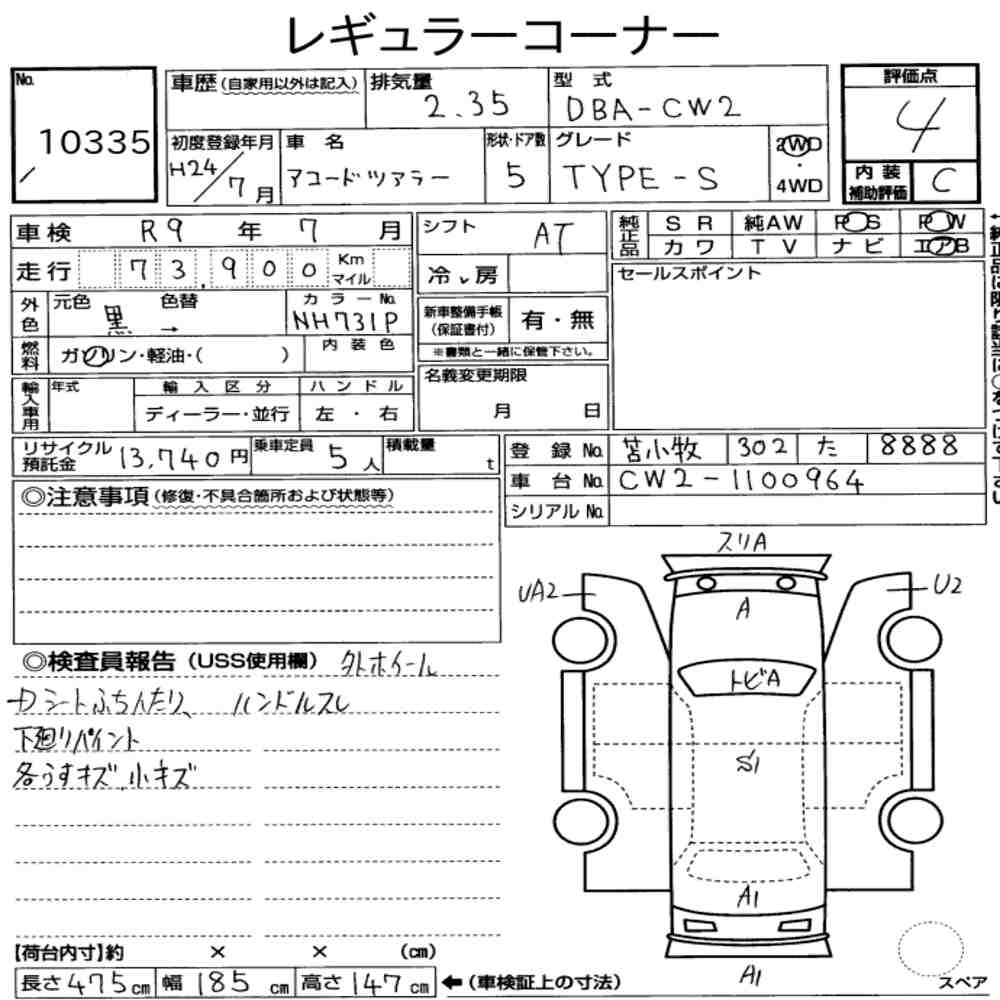 レギュラーコーナー
No. 10335
車歴 (自家用以外は記入)
排気量 2.35
型式 DBA-CW2
評価点 4
初度登録年月 H24/7月
車名 アコードツアラー
形状・ドア数 5
グレード TYPE-S
2WD・4WD
内装補助評価 C
車検 R9年7月
シフト AT
純正品 SR 純AW PS PW
カワ TV ナビ エアB
走行 73,900 Km マイル
冷、房
セールスポイント
外色 元色 黒 → 色替
カラーNo. NH731P
新車整備手帳(保証書付) 有・無
※書類と一緒に保管下さい。
燃料 ガソリン・軽油・( )
内装色
名義変更期限 月 日
輸入車用 年式 輸入区分 ハンドル
ディーラー・並行 左・右
リサイクル預託金 13,740円
乗車定員 5人
積載量 t
登録No. 苫小牧 302 た 8888
車台No. CW2-1100964
シリアルNo.
◎注意事項(修復・不具合箇所および状態等)
◎検査員報告(USS使用欄) 外ホイール
カシートふちへたり、 ハンドルスレ
下廻りペイント
各うすキズ、小キズ
スリA
UA2
U2
A
トビA
S1
A1
A1
スペア
【荷台内寸】約 × × (cm)
長さ475cm 幅185cm 高さ147cm ←(車検証上の寸法)